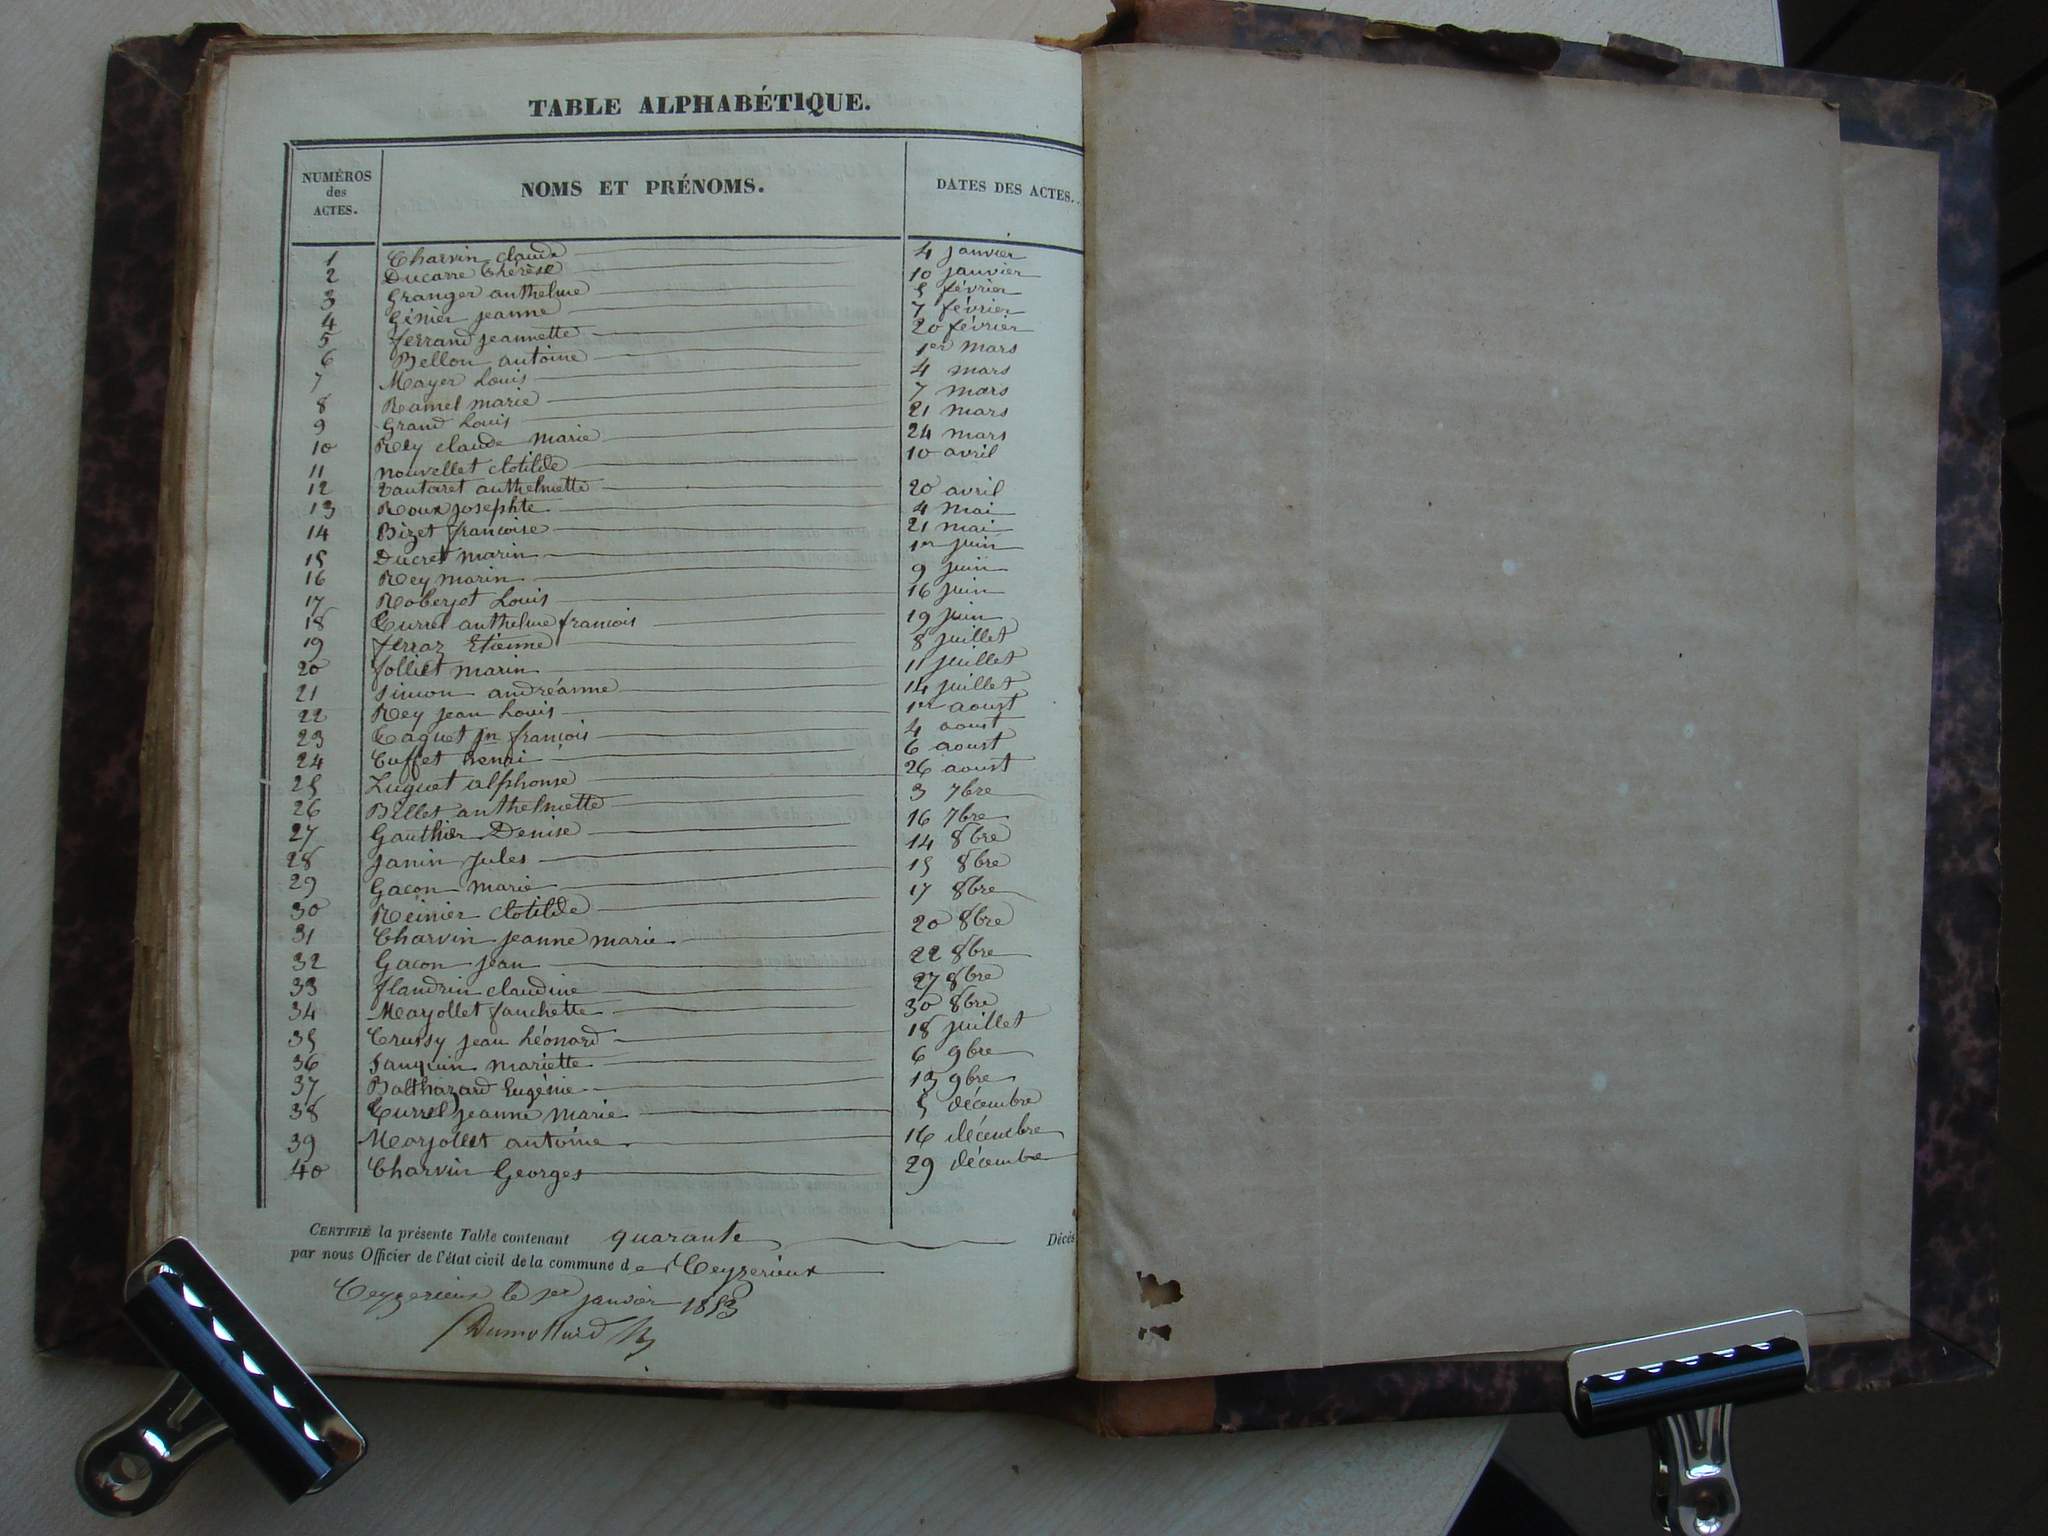 TABLE ALPHABÉTIQUE.
NUMÉROS des ACTES. NOMS ET PRÉNOMS. DATES DES ACTES.
1 Charvin claude 4 janvier
2 Ducarre thérèse 10 janvier
3 Granger anthelme 5 février
4 Génier jeanne 7 février
5 ferrand jeannette 20 février
6 Bellon antoine 1er mars
7 Mayer Louis 4 mars
8 Ramel marie 7 mars
9 Grand Louis 21 mars
10 Rey claude marie 24 mars
11 nouvellet clotilde 10 avril
12 tantaret anthelmette 20 avril
13 Roux josephte 4 mai
14 Bizet francoise 21 mai
15 Ducret marin 1er juin
16 Rey marin 9 juin
17 Roberjot Louis 16 juin
18 Currel anthelme francois 19 juin
19 ferraz Etienne 8 juillet
20 folliet marin 11 juillet
21 simon andréanne 14 juillet
22 Rey jean Louis 1er aoust
23 Caquet jn francois 4 aoust
24 Cuffet henri 6 aoust
25 Luguet alphonse 26 aoust
26 Billet anthelmette 3 7bre
27 Gauthier Denise 16 7bre
28 Janin Jules 14 8bre
29 Gacon marie 15 8bre
30 Réinier Clotilde 17 8bre
31 Charvin jeanne marie 20 8bre
32 Gacon jean 22 8bre
33 flandrin claudine 27 8bre
34 Marjollet fanchette 30 8bre
35 Crussy jean Léonard 18 juillet
36 Janquin mariette 6 9bre
37 Balthazard Eugénie 13 9bre
38 Currel jeanne marie 5 décembre
39 Marjollet antoine 16 décembre
40 Charvin Georges 29 décembre
CERTIFIÉ la présente Table contenant quarante Décès
par nous Officier de l'état civil de la commune de Ceyzerieux
Ceyzerieux le 1er janvier 1853
Dumollard